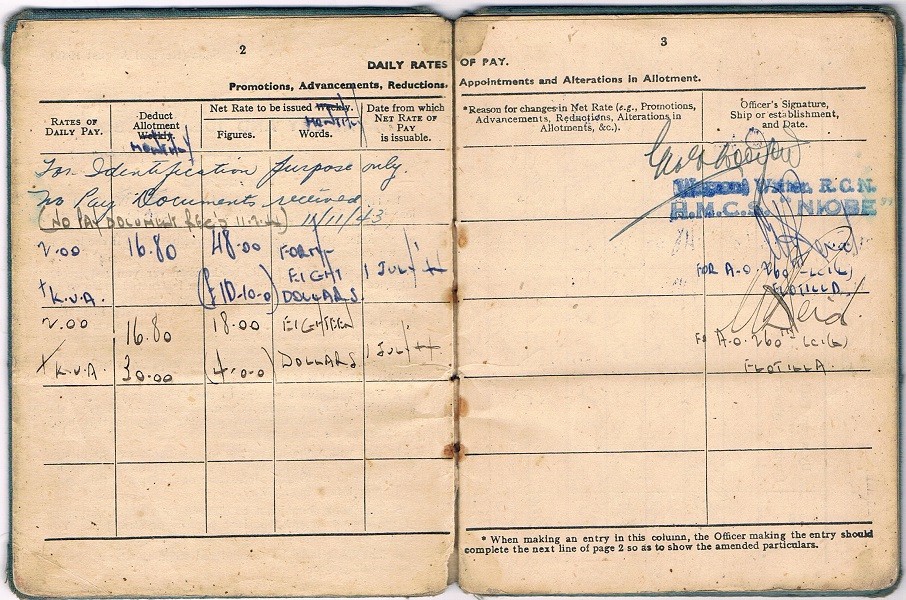 2
DAILY RATES
Promotions, Advancements, Reductions.
RATES OF DAILY PAY.
Deduct Allotment Weekly. MONTHLY
Net Rate to be issued Weekly. MONTHLY
Figures.
Words.
Date from which NET RATE OF PAY is issuable.
For Identification purpose only.
No Pay Documents received
(NO PAY DOCUMENT REC'D 11/11/43
2.00
16.80
48.00
FORTY EIGHT DOLLARS
1 JULY 44
+ K.U.A.
(£10-10-0)
2.00
16.80
18.00
EIGHTEEN DOLLARS
1 JULY 44
+ K.U.A.
30.00
(4-0-0)
3
OF PAY.
Appointments and Alterations in Allotment.
*Reason for changes in Net Rate (e.g., Promotions,
Advancements, Reductions, Alterations in
Allotments, &c.).
Officer's Signature,
Ship or establishment,
and Date.
Writer, R.C.N.
H.M.C.S. "NIOBE"
FOR A.O. 260TH LCI(L)
FLOTILLA.
A.O. 260TH LCI(L)
FLOTILLA.
* When making an entry in this column, the Officer making the entry should
complete the next line of page 2 so as to show the amended particulars.